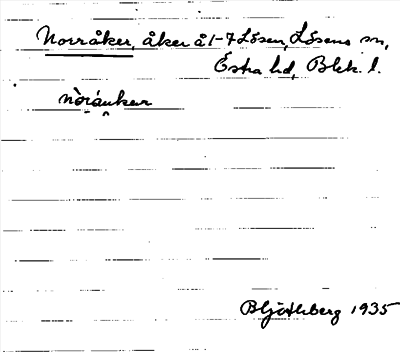 Norråker, åker å 1-7 Lösen, Lösens sn,
Östra hd, Blek. l.
nòráukær
B Hjöthberg 1935